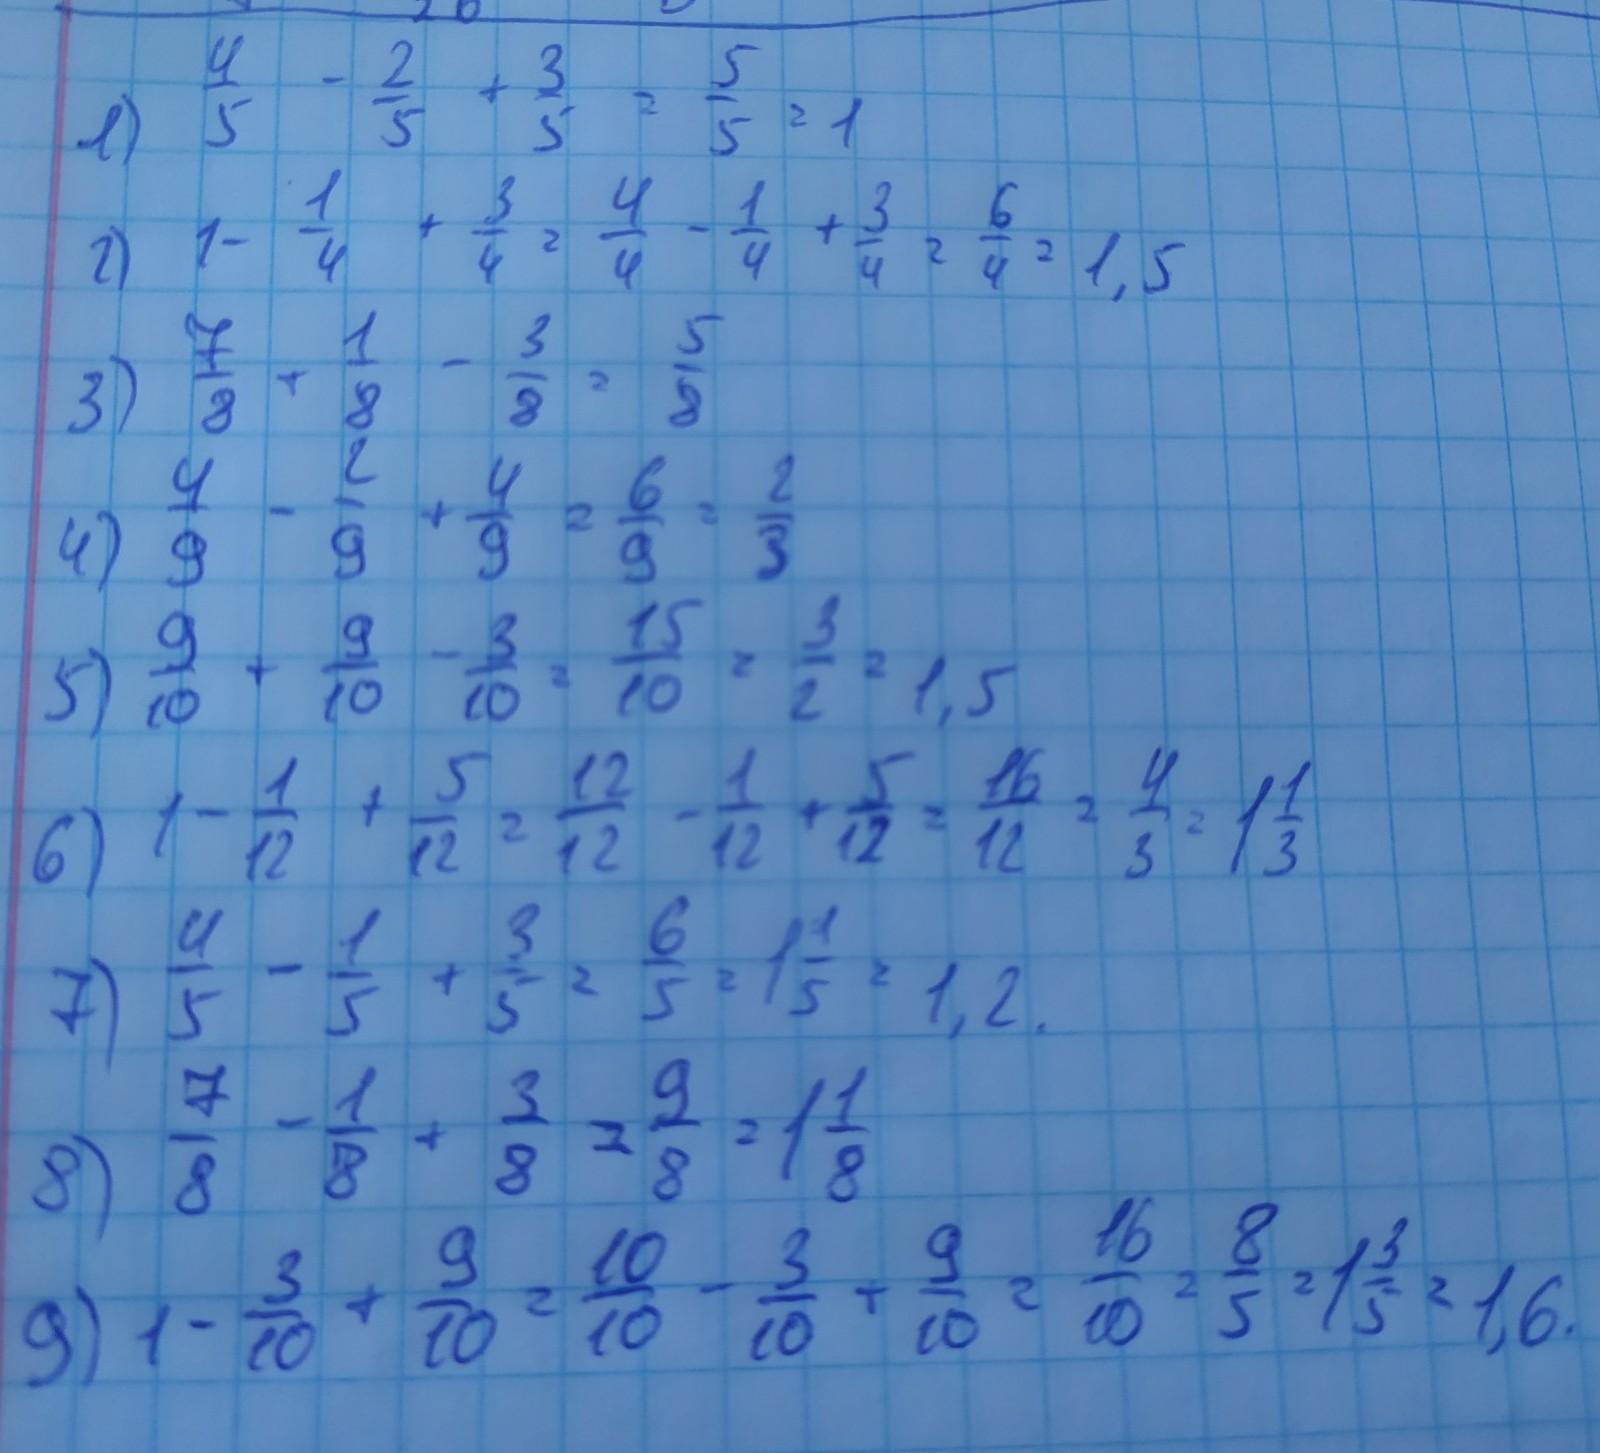 1) 4/5 - 2/5 + 3/5 = 5/5 = 1
2) 1 - 1/4 + 3/4 = 4/4 - 1/4 + 3/4 = 6/4 = 1,5
3) 7/8 + 1/8 - 3/8 = 5/8
4) 4/9 - 2/9 + 4/9 = 6/9 = 2/3
5) 9/10 + 9/10 - 3/10 = 15/10 = 3/2 = 1,5
6) 1 - 1/12 + 5/12 = 12/12 - 1/12 + 5/12 = 16/12 = 4/3 = 1 1/3
7) 4/5 - 1/5 + 3/5 = 6/5 = 1 1/5 = 1,2.
8) 7/8 - 1/8 + 3/8 = 9/8 = 1 1/8
9) 1 - 3/10 + 9/10 = 10/10 - 3/10 + 9/10 = 16/10 = 8/5 = 1 3/5 = 1,6.